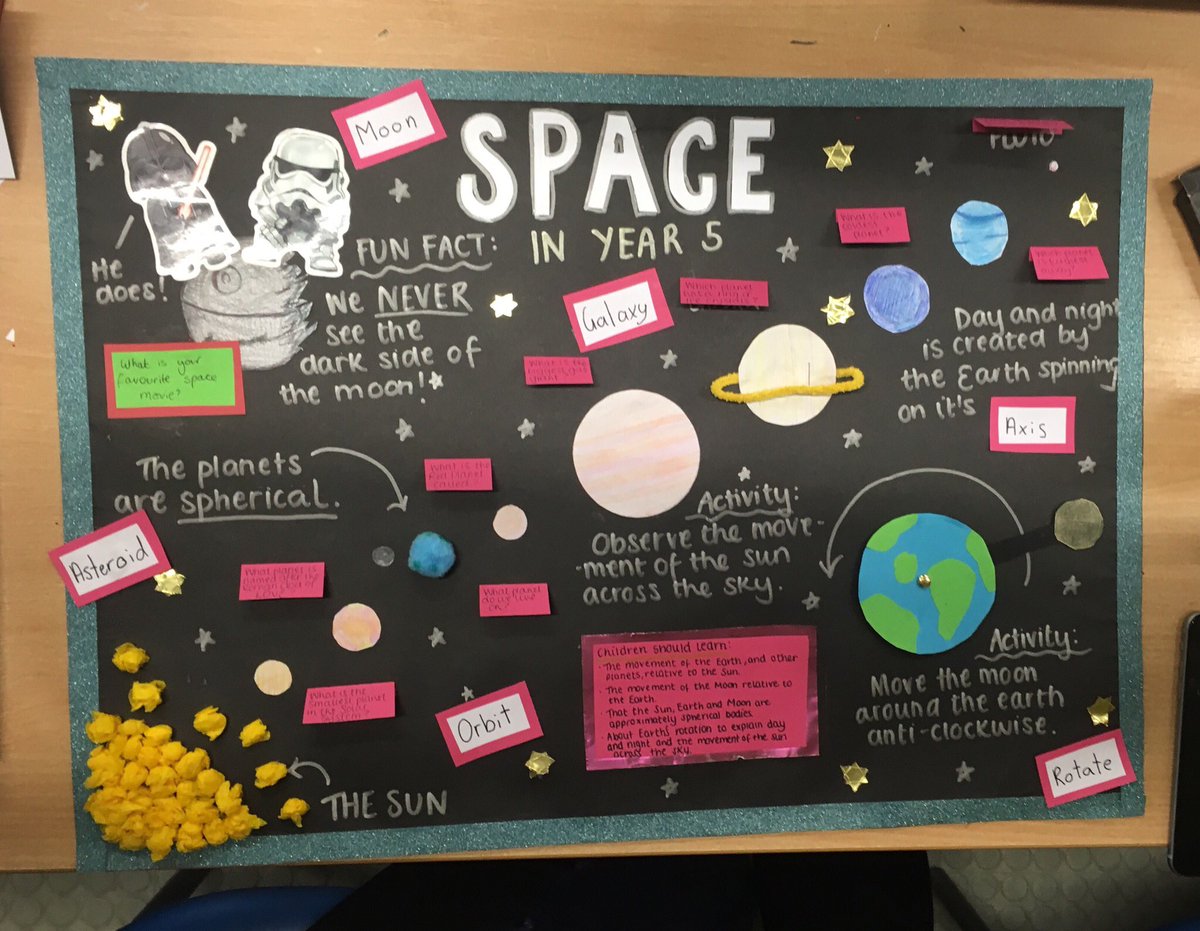 SPACE
IN YEAR 5
Moon
FUN FACT:
We NEVER
see the
dark side of
the moon!
He
does!
What is your
favourite space
movie?
Galaxy
Which planet
What is the
coldest
planet?
PLUTO
Day and night
is created by
the Earth spinning
on it's
Axis
What is the
biggest gas
giant
What is the
Red Planet
called?
The planets
are spherical.
Asteroid
What planet is
named after the
Roman God of
Love
What planet
do we live
on?
What is the
smallest planet
in the solar
system?
Activity:
Observe the move-
-ment of the sun
across the sky.
Children should learn:
- The movement of the Earth, and other
planets, relative to the Sun.
- The movement of the Moon relative to
the Earth.
- That the Sun, Earth and Moon are
approximately spherical bodies.
- About Earth's rotation to explain day
and night and the movement of the sun
across the sky.
Activity:
Move the moon
around the earth
anti-clockwise.
Orbit
Rotate
THE SUN